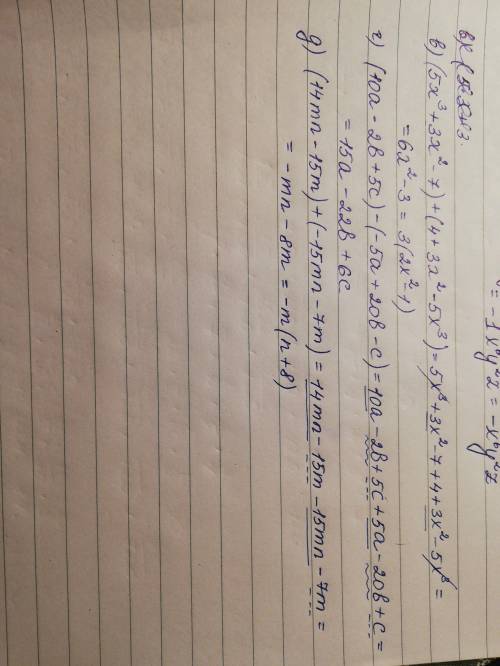 = -1x⁶y⁴z = -x⁶y⁴z
в) (5x³+3x²-7)+(4+3x²-5x³)=5x³+3x²-7+4+3x²-5x³=
=6x²-3=3(2x²-1)
г) (10a-2b+5c)-(-5a+20b-c)=10a-2b+5c+5a-20b+c=
=15a-22b+6c
д) (14mn-15m)+(-15mn-7m)=14mn-15m-15mn-7m=
=-mn-8m=-m(n+8)